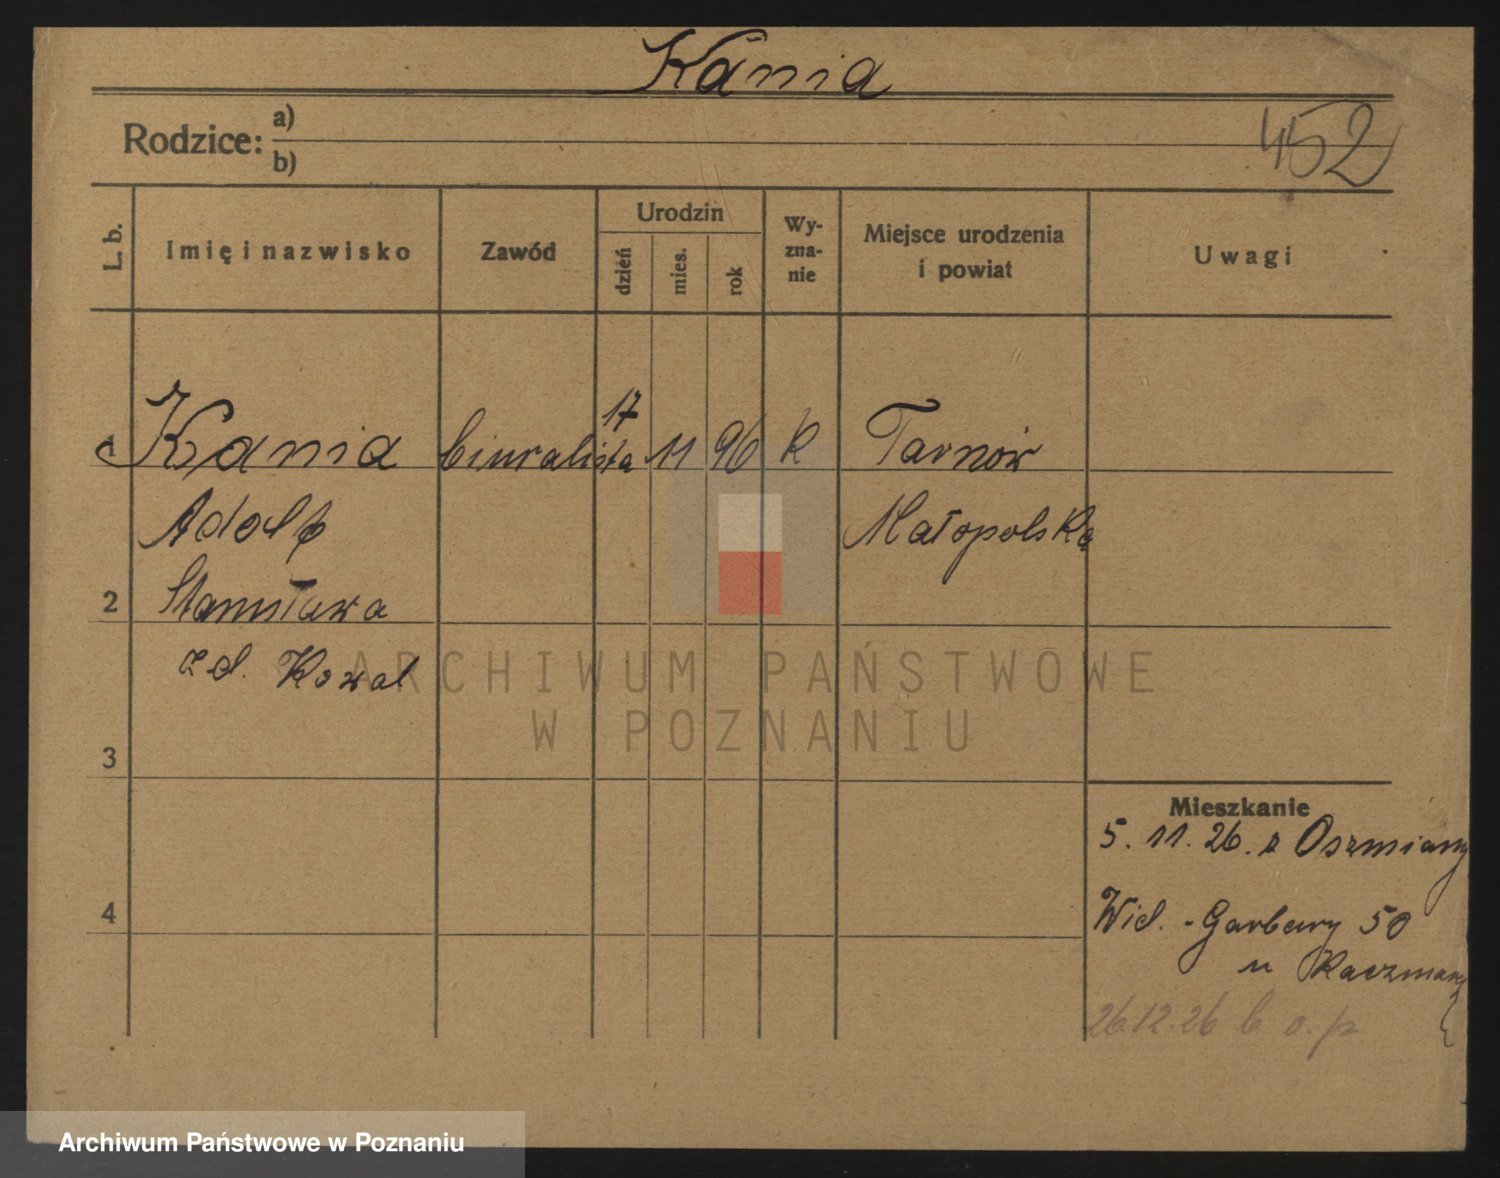 Kania
452
Rodzice: a)
b)
L. b.
Imię i nazwisko
Zawód
Urodzin
dzień
mies.
rok
Wy-
zna-
nie
Miejsce urodzenia
i powiat
Uwagi
1 Kania biuralista 17 11 96 k Tarnów
Adolf Małopolska
2 Stanisława
zd. Kowal
3
4
Mieszkanie
5. 11. 26. z Oszmiany
Wiel. - Garbary 50
u Kaczmarek
26.12.26 b. o. p
ARCHIWUM PAŃSTWOWE
W POZNANIU
Archiwum Państwowe w Poznaniu